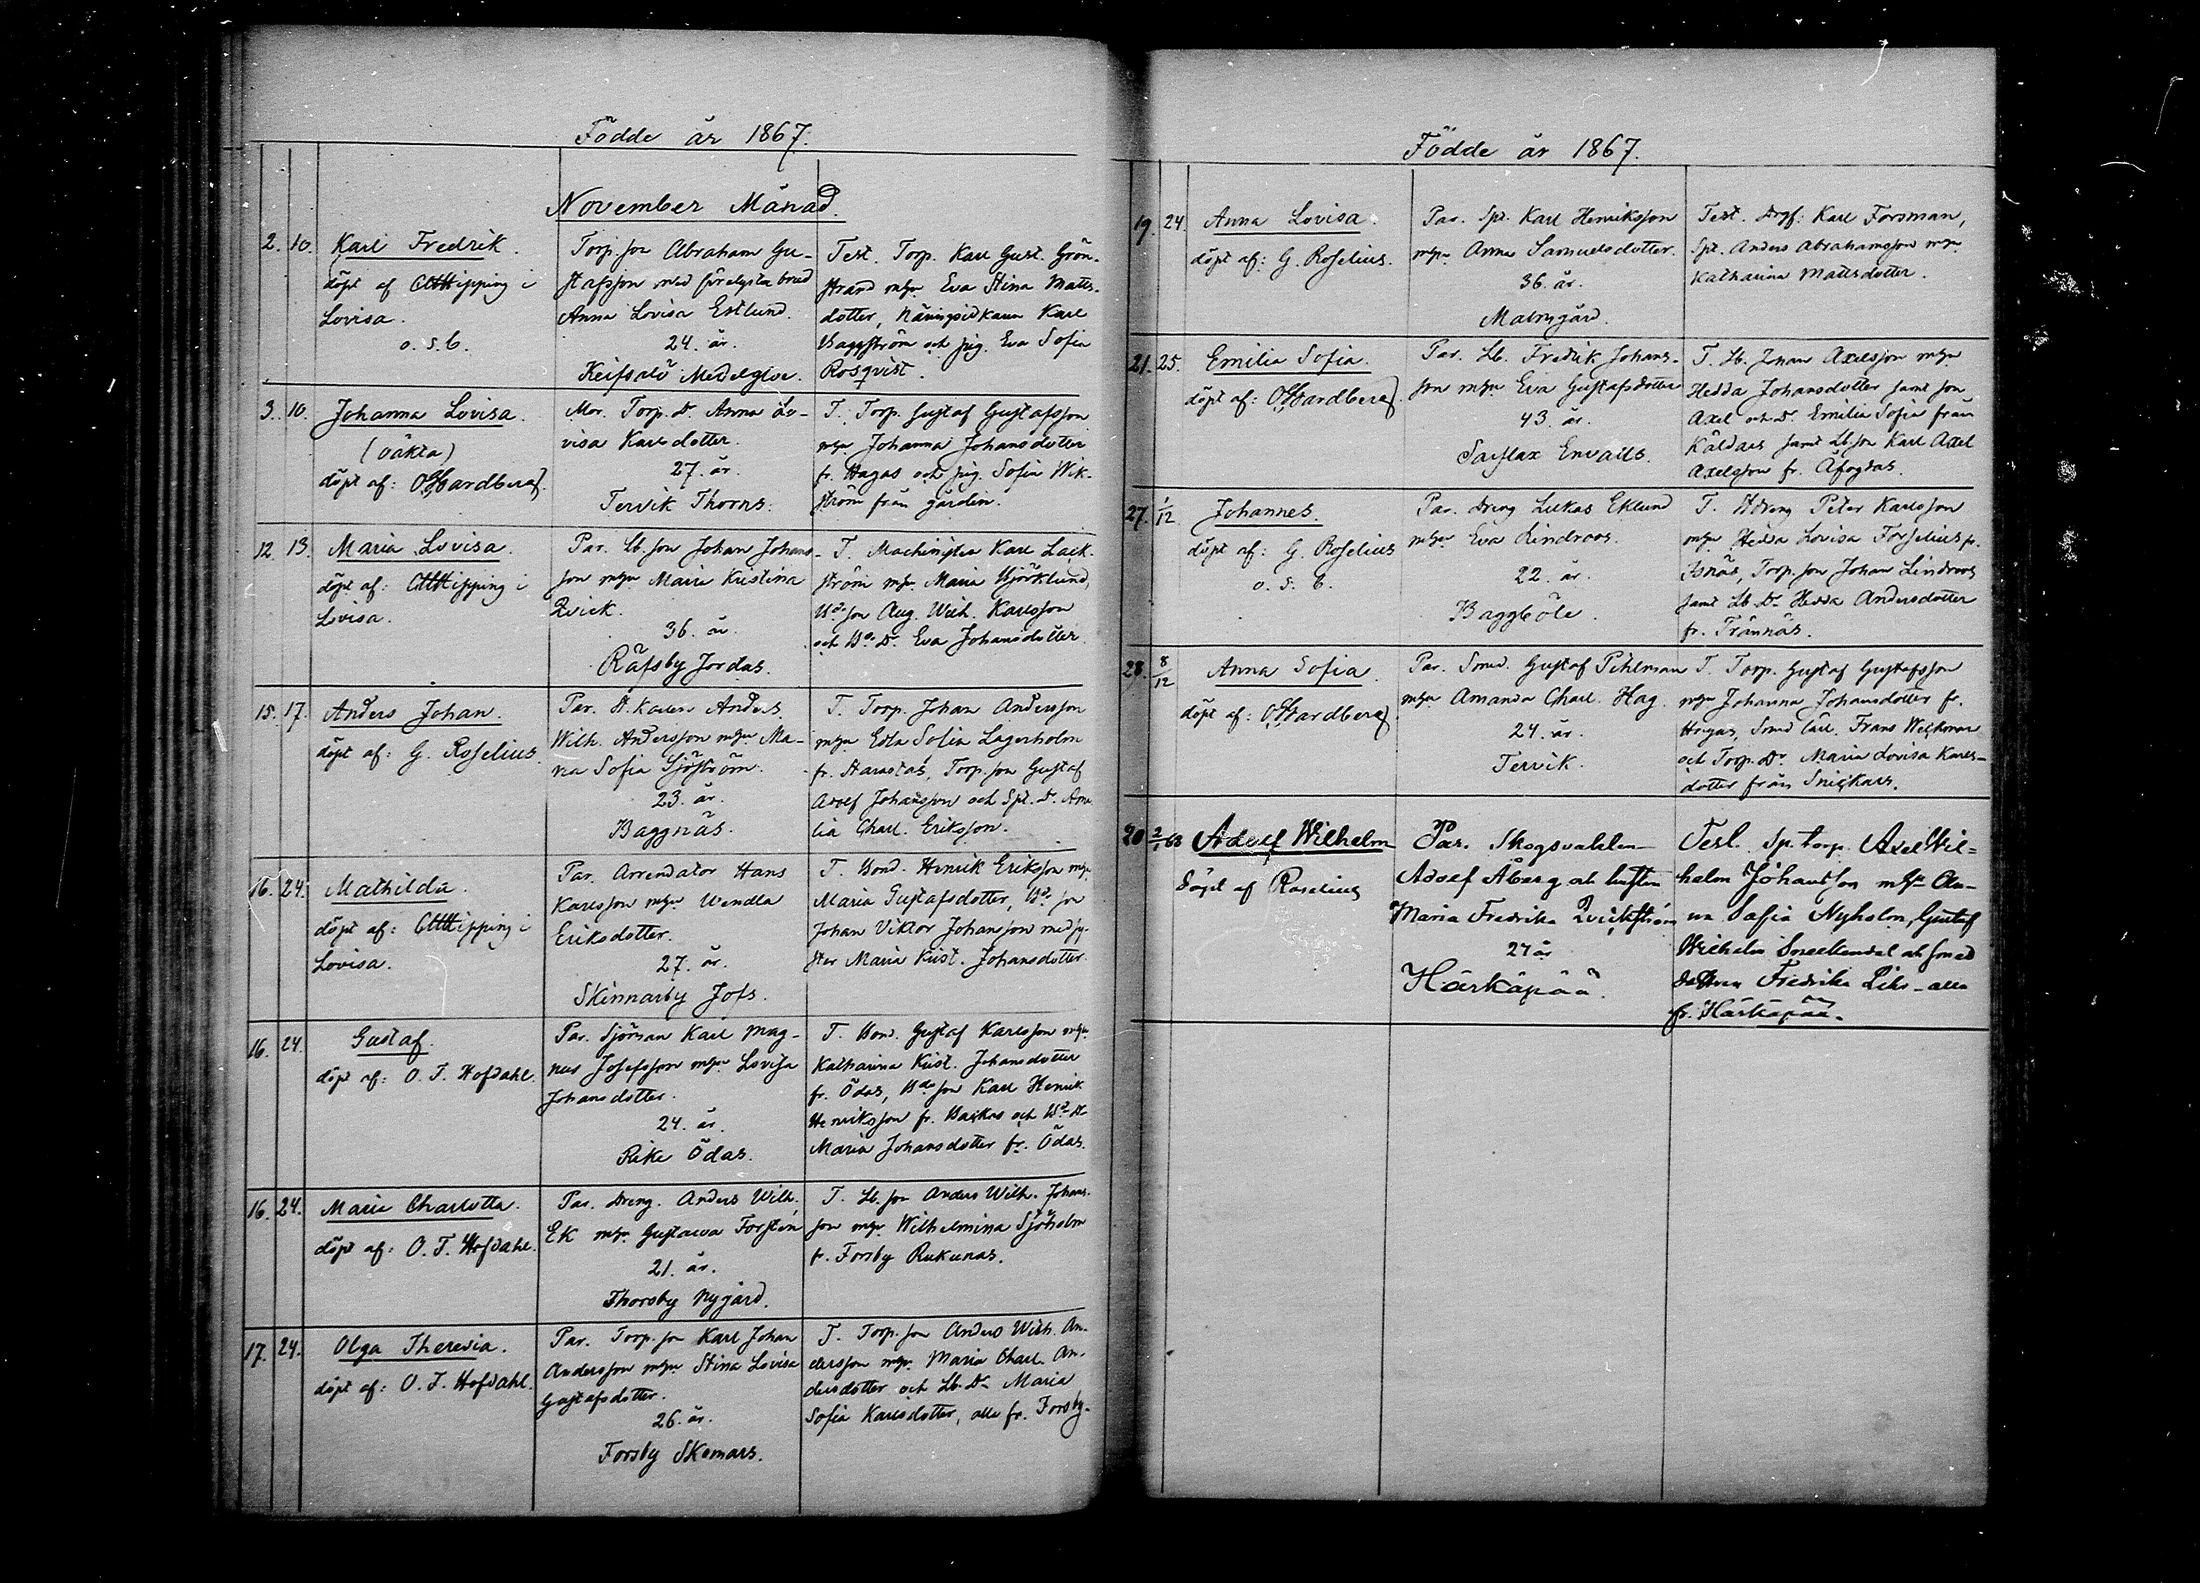 Födde år 1867.
November Månad.
2. 10. Karl Fredrik.
döpt af Kipping i
Lovisa.
o. s. b.
Torp. son Abraham Gu-
stafsson med förelysta brud
Anna Lovisa Estlund.
24. år.
Keipsalö Medelgloe.
Test. Torp. Karl Gust. Grön-
strand m hu Eva Stina Matts-
dotter, Näringsidkaren Karl
Baggström och pig. Eva Sofia
Rosqvist.
3. 10. Johanna Lovisa.
(oäkta)
döpt af: O. Hardberg.
Mor. Torp. D. Anna Lo-
visa Karlsdotter.
27. år.
Tervik Thorns.
T. Torp. Gustaf Gustafsson
m hu Johanna Johansdotter
fr. Hagas och pig. Sofia Wik-
ström från gården.
12. 13. Maria Lovisa.
döpt af: Kipping i
Lovisa.
Par. Lb. son Johan Johans-
son m hu Maria Kristina
Qvick.
36. år.
Räfsby Jordas.
T. Machinista Karl Lack-
ström m hu Maria Björklund,
Bd. son Aug. Wilh. Karlsson
och Bd. D. Eva Johansdotter.
15. 17. Anders Johan.
döpt af: G. Roselius.
Par. Anders
Wilh. Andersson m hu Ma-
ria Sofia Sjöström.
23. år.
Baggnäs.
T. Torp. Johan Andersson
m hu Edla Sofia Lagerholm
fr. Torp. son Gustaf
Adolf Johansson och Spt. D. Ama-
lia Charl. Eriksson.
16. 24. Mathilda.
döpt af: Kipping i
Lovisa.
Par. Arrendator Hans
Karlsson m hu Wendla
Eriksdotter.
27. år.
Skinnarby Jofs.
T. Bond. Henrik Eriksson m hu
Maria Gustafsdotter, Bd. son
Johan Viktor Johansson med sy-
ster Maria Krist. Johansdotter
16. 24. Gustaf.
döpt af: O. T. Hofdahl.
Par. Sjöman Karl Mag-
nus Josefsson m hu Lovisa
Johansdotter.
24. år.
Rike Ödas.
T. Bond. Gustaf Karlsson m hu
Katharina Krist. Johansdotter
fr. Ödas, Bd. son Karl Henrik
Henriksson fr. Backas och Bd. D.
Maria Johansdotter fr. Ödas.
16. 24. Maria Charlotta.
döpt af: O. T. Hofdahl.
Par. Dreng. Anders Wilh.
Ek m hu Gustawa Forstén
21. år.
Thorsby Nygård.
T. Lb. son Anders Wilh. Johans-
son m hu Wilhelmina Sjöholm
fr. Forsby Rukunas.
17. 24. Olga Theresia.
döpt af: O. T. Hofdahl.
Par. Torp. son Karl Johan
Andersson m hu Stina Lovisa
Gustafsdotter.
26. år.
Forsby Skomars.
T. Torp. son Anders Wilh. An-
dersson m hu Maria Charl. An-
dersdotter och Lb. D. Maria
Sofia Karlsdotter, alla fr. Forsby.
Födde år 1867.
19. 24 Anna Lovisa.
döpt af: G. Roselius.
Par. Spt. Karl Henriksson
m hu Anna Samuelsdotter.
36. år.
Malmgård.
Test. Drgf: Karl Forsman,
Spt. Anders Abrahamsson m hu
Katharina Mattsdotter.
21. 25. Emilia Sofia.
döpt af: O. Hardberg.
Par. Lb. Fredrik Johans-
son m hu Eva Gustafsdotter
43. år.
Sarflax Envalls.
T. Lb. Johan Axelsson m hu
Hedda Johansdotter samt son
Axel och D. Emilia Sofia från
Käldars samt Lb. son Karl Axel
Axelsson fr. Åfogdas.
27. 1/12 Johannes.
döpt af: G. Roselius
o. s. b.
Par. Dreng Lukas Eklund
m hu Eva Lindroos.
22. år.
Baggböle.
T. Peter Karlsson
m hu Hedda Lovisa Forselius fr.
Isnäs, Torp. son Johan Lindroos
samt Lb. D. Hedda Andersdotter
fr. Trännäs.
28. 8/12 Anna Sofia.
döpt af: O. Hardberg.
Par. Smed. Gustaf Pihlman
m hu Amanda Charl. Hag.
24. år.
Tervik.
T. Torp. Gustaf Gustafsson
m hu Johanna Johansdotter fr.
Hagas, Smed lärl. Frans Welkman
och Torp. D. Maria Lovisa Karls-
dotter från Snickars.
20 2/1 68 Adolf Wilhelm
Döpt af Roselius
Par. Skogsvakten
Adolf Åberg och hustru
Maria Fredrika Qvickström
27 år
Härkäpää.
Test. Sp. torp. Axel Wil-
helm Johansson m hu An-
na Sofia Nyholm, Gustaf
Wilhelm och smed
dottren Fredrika alla
fr. Härkäpää.